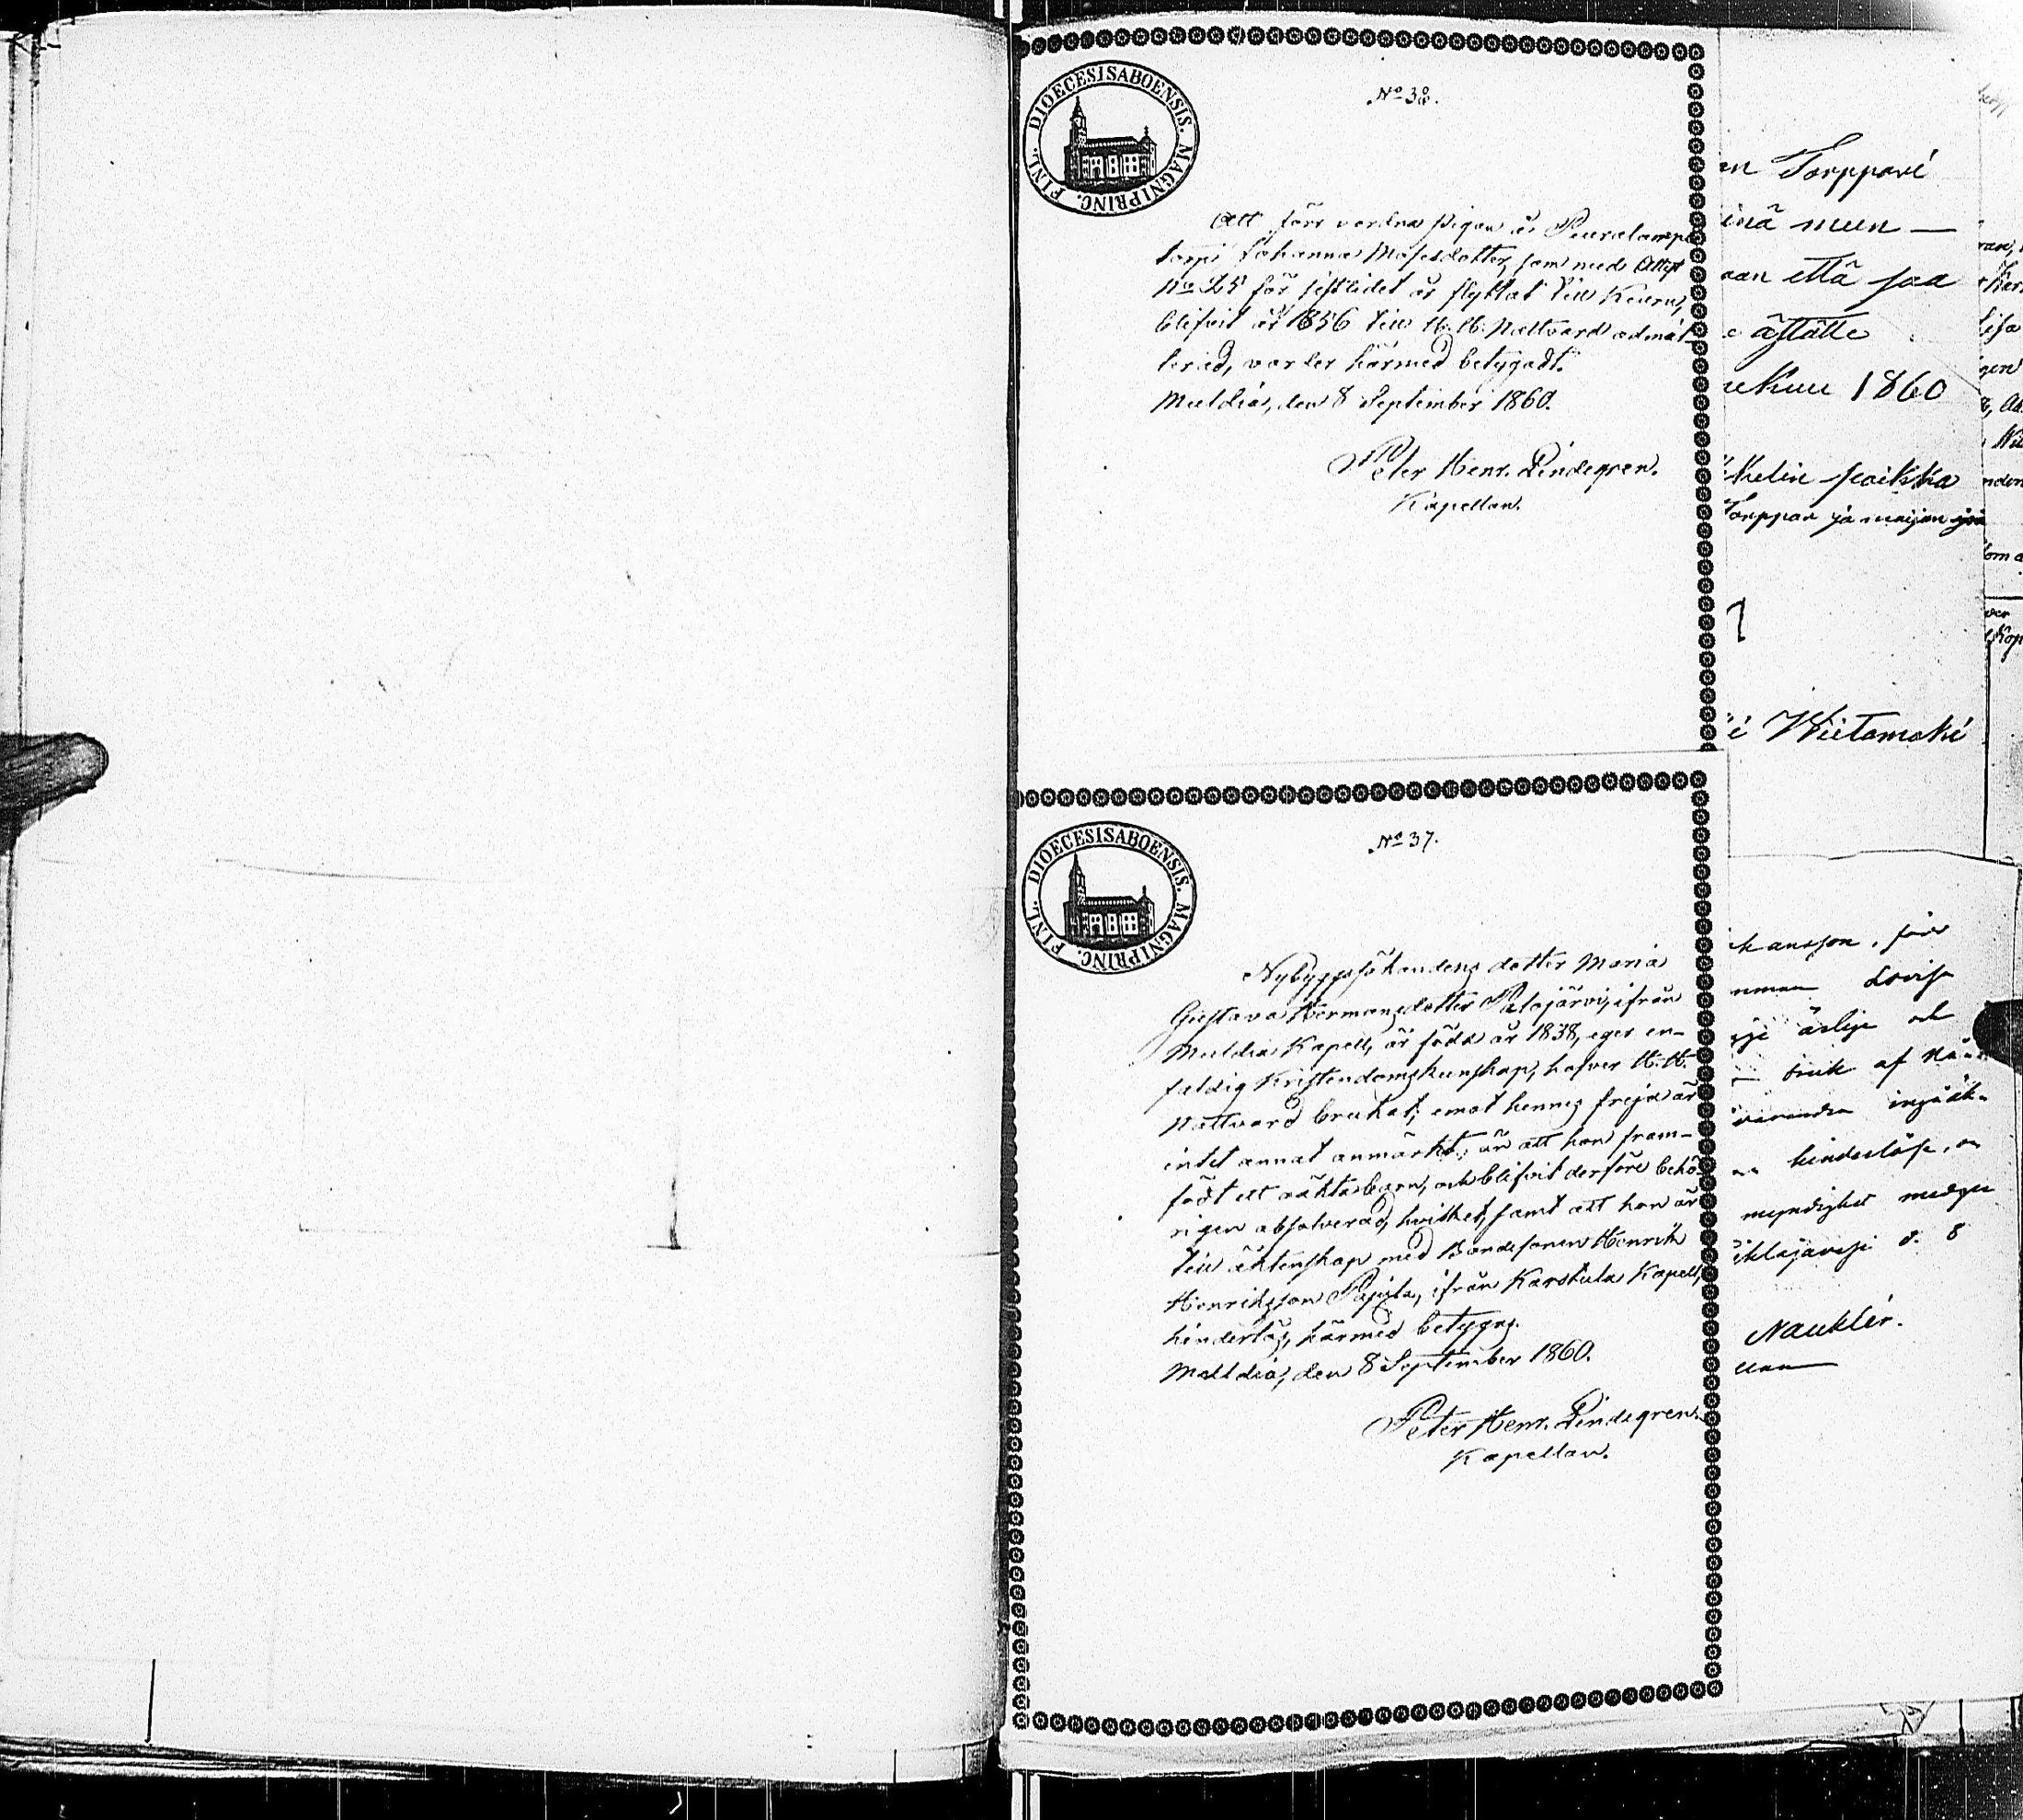 DIOECESIS ABOENSIS. MAGNI PRINC. FINL.
No 38.
Att förr vordna pigan å Peuralampi
torp Johanna Mosesdotter, som med Attest
No 25 för sistlidet år flyttat till Keuru,
blifvit år 1856 till H. H. Nattvard admit-
terad, varder härmed betygadt.
Multia, den 8 September 1860.
Peter Henr. Lindegren.
Kapellan.
DIOECESIS ABOENSIS. MAGNI PRINC. FINL.
No 37.
Nybyggssökandens dotter Maria
Gustava Hermansdotter Patajärvi, ifrån
Multia Kapell, är född år 1838, eger en-
faldig Kristendomskunskap, hafver H. H.
Nattvard brukat; emot hennes frejd är
intet annat anmärkt, än att hon fram-
födt ett oäkta barn, och blifvit derföre behö-
rigen absolverad, hvilket, samt att hon är
till äktenskap med Bondesonen Henrik
Henriksson Pajula, ifrån Karstula Kapell,
hinderlös, härmed betygas.
Multia, den 8 September 1860.
Peter Henr. Lindegren.
Kapellan.
en Torppari
inä muun
aan että saa
ästätte
ukuu 1860
kelin poikka
Torppar ja
i Wiitamäki
kansson, för
Lovisa
ärlige och
bruk af
hinderlöse, 
myndighet medger
d. 8
Nauklér.